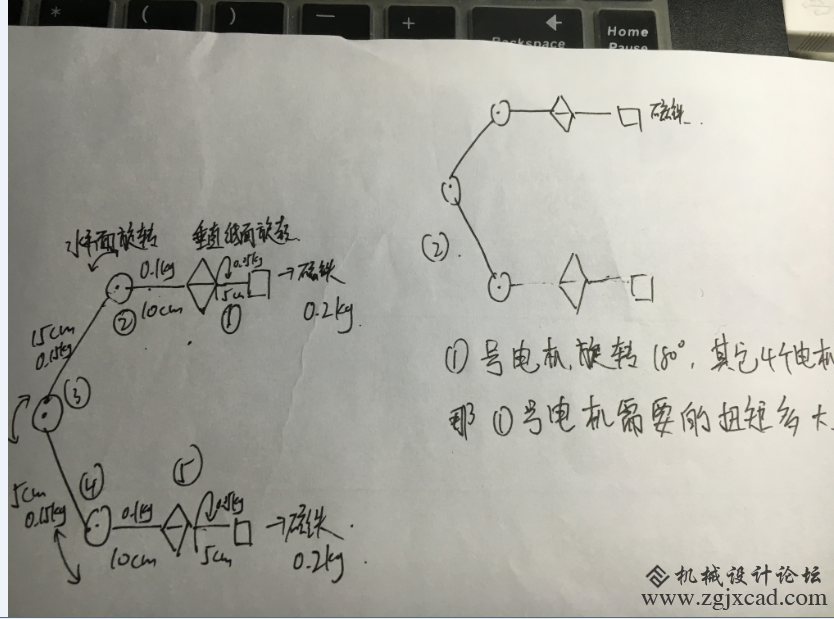 * ( ) — +
Backspace
Home
Pause
磁铁
水平面旋转
垂直纸面旋转
0.1kg
10cm
5cm
→磁铁
0.2kg
①
②
15cm
0.15kg
③
④
⑤
5cm
0.15kg
0.1kg
10cm
5cm
→磁铁
0.2kg
(2)
①号电机旋转180°,其它4个电机
那①号电机需要的扭矩多大
机械设计论坛
www.zgjxcad.com